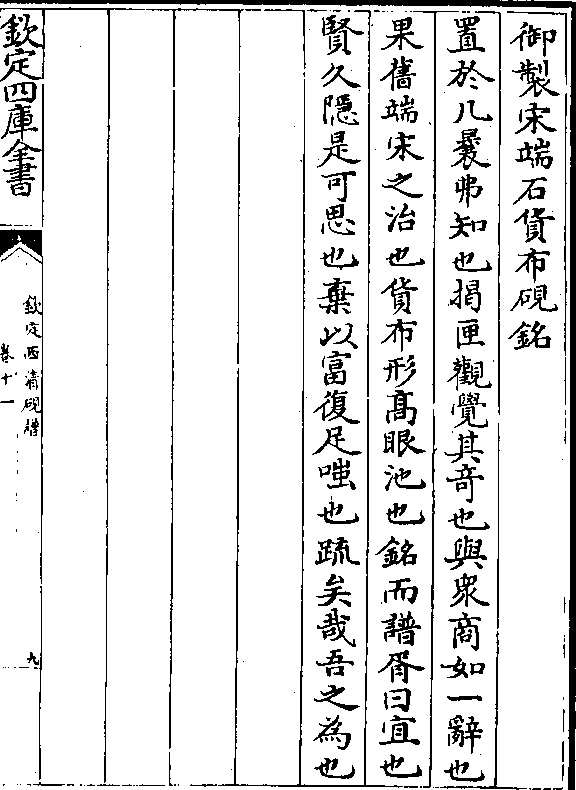 御製宋端石貨布硯銘
置於几曩弗知也揭匣觀覺其奇也與衆商如一辭也
果舊端宋之治也貨布形髙眼池也銘而譜胥曰宜也
賢久隱是可思也棄以富復足嗤也踈矣哉吾之為也
欽定四庫全書
欽定西清硯譜
卷十一
九